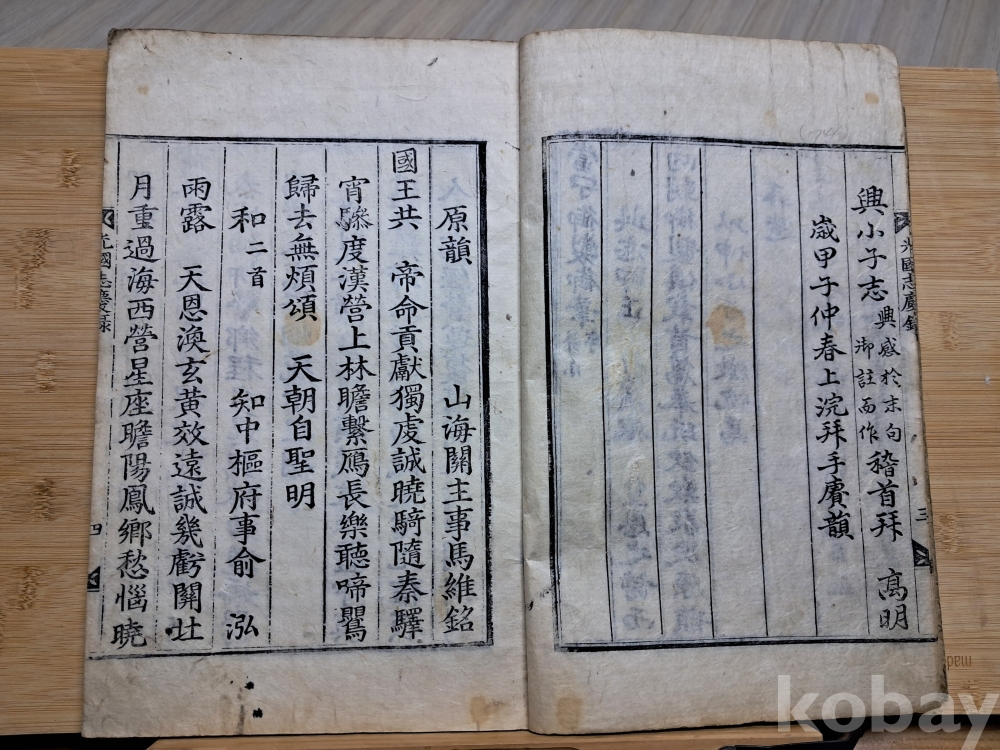 興小子志 興感於末句 御註而作 稽首拜 高明
歲甲子仲春上浣拜手賡韻
光國志慶錄
三
原韻 山海關主事馬維銘
國王共 帝命貢獻獨虔誠曉騎隨秦驛
宵驂度漢營上林瞻繫鴈長樂聽啼鸎
歸去無煩頌 天朝自聖明
和二首 知中樞府事俞 泓
雨露 天恩渙玄黃效遠誠幾虧關
月重過海西營星座瞻陽鳳鄉愁惱曉
光國志慶錄
四
kobay